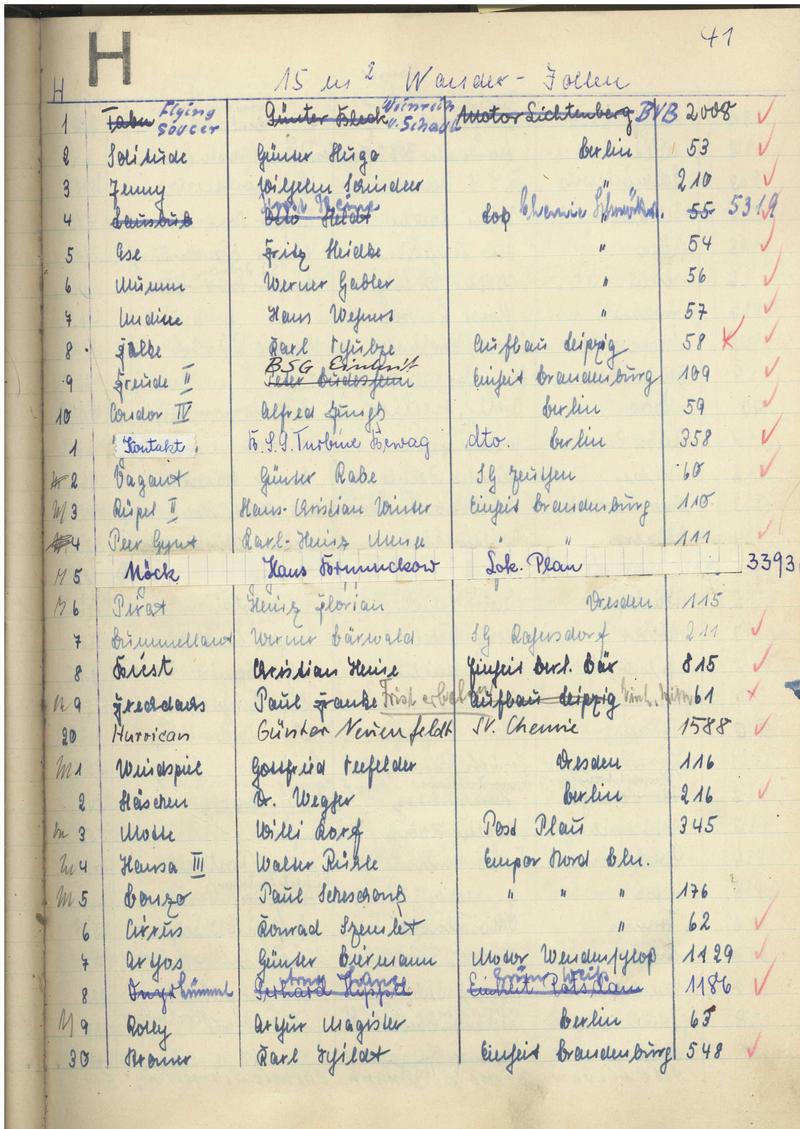 H
41
H 15 m² Wander-Jollen
1 Tabu Flying Soucer Günter Fleck Weinreich u. Schade Motor Lichtenberg BVB 2008
2 Solitude Günter Hugo Berlin 53
3 Jenny Wilhelm Schinder " 210
4 Lausbub Otto Heldt Lok Chemie 55 5319
5 Ese Fritz Heidke " 54
6 Mumm Werner Gabler " 56
7 Undine Hans Wehners " 57
8 Falke Karl Schulze Aufbau Leipzig 58
9 Freude II BSG Einheit Peter Einheit Brandenburg 109
10 Condor IV Alfred Jungk Berlin 59
1 Kontakt B.S.G. Turbine Bewag dto. Berlin 358
2 Vagant Günter Rabe SG Zeuthen 60
M 3 Rüpel II Hans-Christian Winter Einheit Brandenburg 110
4 Peer Gynt Karl-Heinz Menge " " 111
M 5 Nöck Hans Lok. Plau 3393
M 6 Pirat Heinz Florian Dresden 115
7 Bummellant Werner Bärwald SG Rahnsdorf 211
8 Biest Christian Heise Einheit Berl. Bär 815
M 9 Frechdachs Paul Franke Frist erbeten Aufbau Leipzig 61
20 Hurrican Günter Neuenfeldt SV. Chemie 1588
M 1 Windspiel Gottfried Seefelder Dresden 116
2 Häschen Dr. Wegner Berlin 216
M 3 Motte Willi Korf Post Plau 345
M 4 Hansa III Walter Rühle Empor Nord Bln.
M 5 Bonzo Paul " " " 176
6 Cirrus Konrad " 62
7 Argos Günter Biermann Motor Wendenschloß 1129
8 Gerhard Hippel Grün Weiß Einheit Potsdam 1186
M 9 Rolly Arthur Magister Berlin 63
30 Kramer Karl Schildt Einheit Brandenburg 548